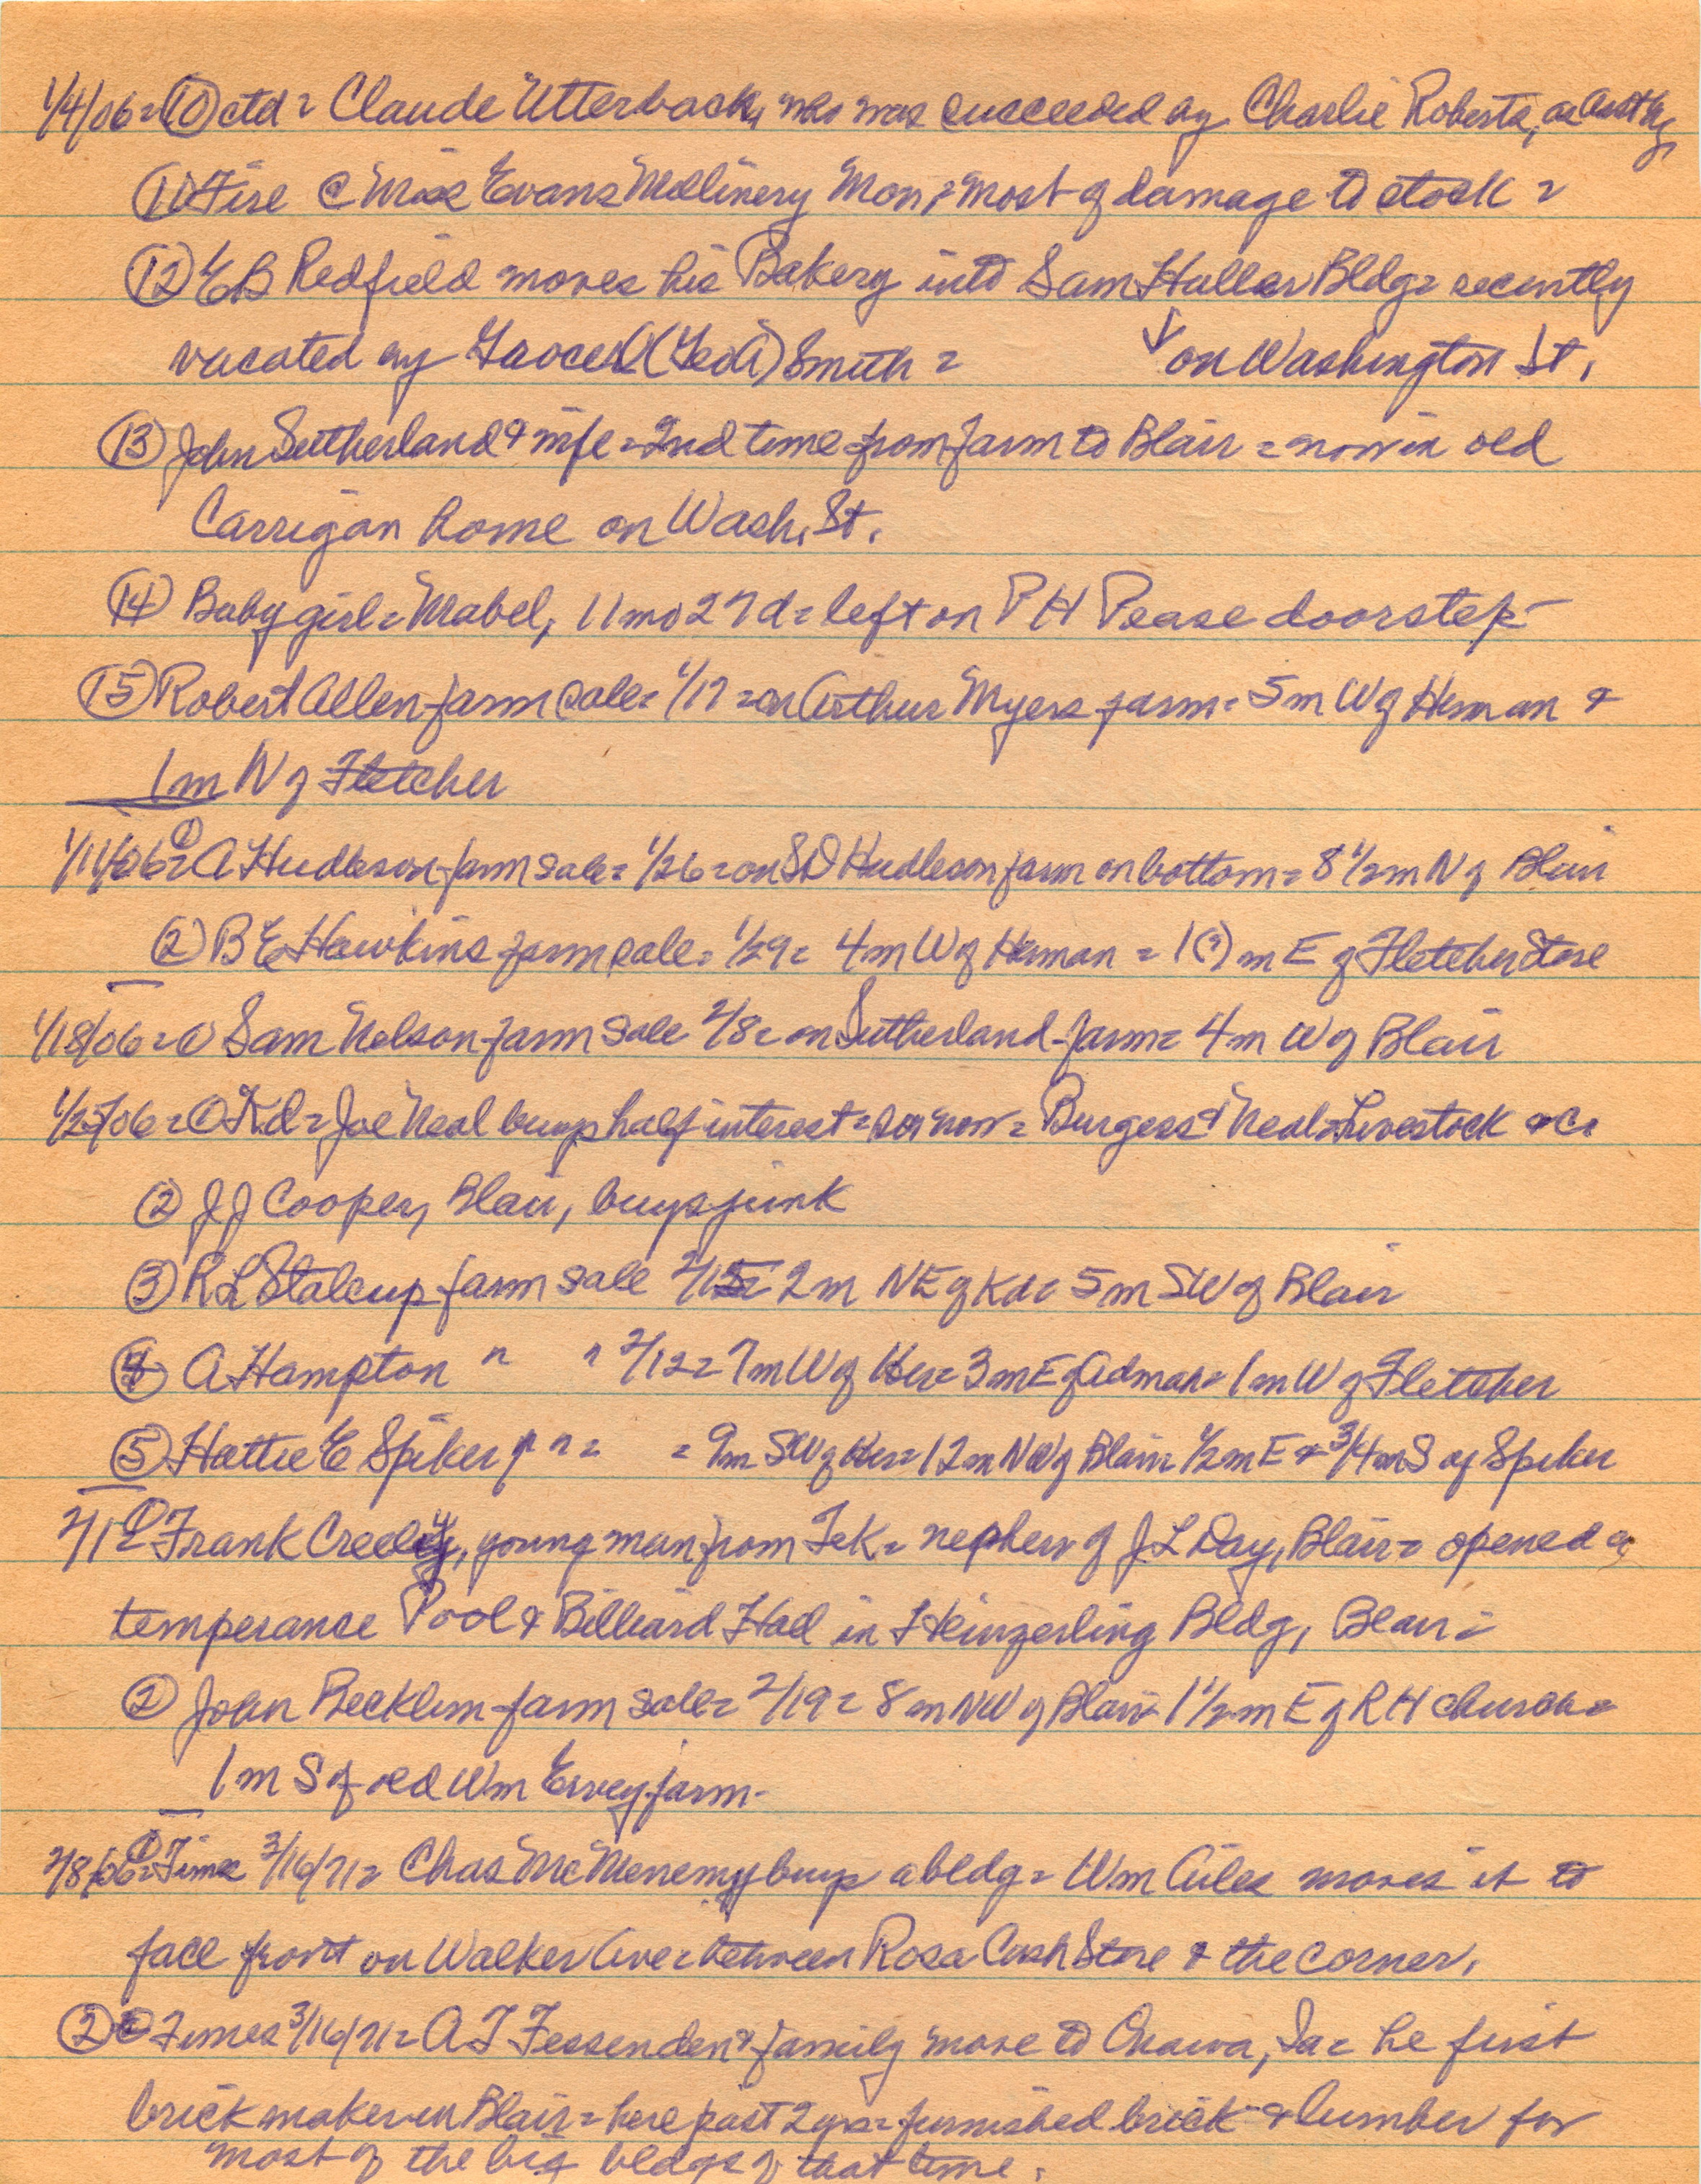 1/4/06 = (10) ctd = Claude Utterback, who was succeeded by Charlie Roberts, as
(11) Fire @ Miss Evans Millinery Mon, = most of damage to stock =
(12) EB Redfield moves his Bakery into Sam Haller Bldg = recently
vacated by Grocer (Geo A) Smith = ↓ on Washington St.
(13) John Sutherland & wife = 2nd time from farm to Blair = now in old
Carrigan home on Wash. St.
(14) Baby girl = Mabel, 11 mo 27 d = left on PH Pease doorstep -
(15) Robert Allen farm sale = 1/17 = on Arthur Myers farm = 5 m W of Herman &
1 m N of Fletcher
1/11/06 = (1) A Hudleson farm sale = 1/26 = on SD Hudleson farm on bottom = 8 1/2 m N of Blair
(2) BE Hawkins farm sale = 1/29 = 4 m W of Herman = 1(?) m E of Fletcher Store
1/18/06 = (1) Sam Nelson farm sale 2/8 = on Sutherland farm = 4 m W of Blair
1/25/06 = (1) Kd = Joe Neal buys half interest = so now = Burgess & Neal = Livestock & Co
(2) JJ Cooper, Blair, buys junk
(3) RL Stalcup farm sale 2/15 = 2 m NE of Kd = 5 m SW of Blair
(4) A Hampton " " 2/12 = 7 m W of Her = 3 m E of Admah = 1 m W of Fletcher
(5) Hattie E Spiker " " = = 9 m SW of Her = 12 m NW of Blair = 1/2 m E & 3/4 m S of Spiker
2/1 = (1) Frank Creeley, young man from Tek = nephew of JL Day, Blair = opened a
temperance Pool & Billiard Hall in Heinzerling Bldg, Blair =
(2) John Recklem farm sale = 2/19 = 8 m NW of Blair = 1 1/2 m E of RH church =
1 m S of old Wm Ervey farm -
2/8/06 = (1) Times 3/16/71 = Chas McMenemy buys a bldg = Wm Ailes moves it to
face front on Walker Ave = between Rosa Cash Store & the corner.
(2) Times 3/16/71 = AT Fessenden & family move to Onawa, Ia = he first
brickmaker in Blair = here past 2 yrs = furnished brick & lumber for
most of the big bldgs of that time.